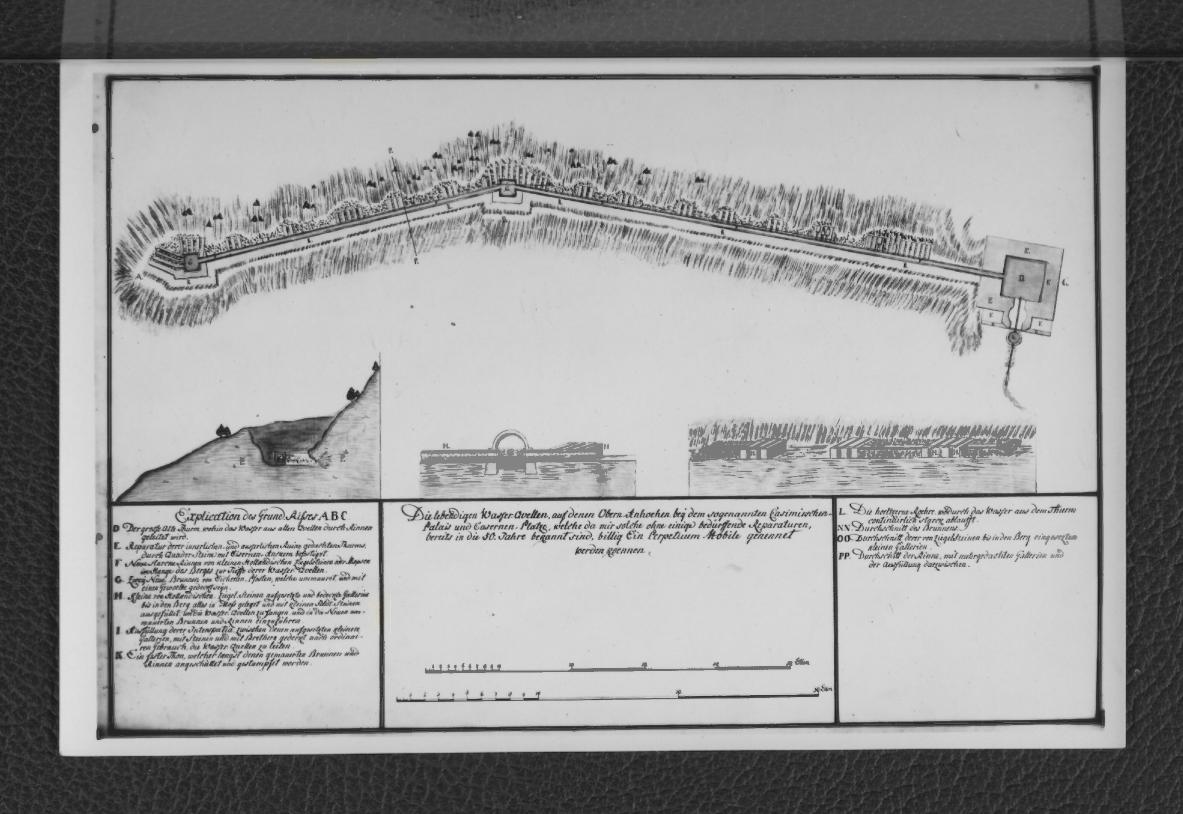 Explication des Grund Risses A B C
D Der große alte Thurm, wohin das Wasser aus allen Qvellen durch Rinnen
geleitet wird.
E Reparatur derer innerlichen und äuserlichen Ruine gedachten Thurms,
durch Quader Steine mit Eisernen Ancrum befestiget.
F Neue Starcke Rinnen von kleinen Holländischen Ziegelsteinen oder Mopsen
im Hange des Berges zur Tieffe derer Wasser Qvellen.
G Zwey Neue Brunnen von Eichenen Pfosten, welche ummauret und mit
einem Gewölbe gedecket seyn.
H Kleine von Holländischen Ziegel Steinen aufgesetzte und bedeckte Gallerien
bis in den Berg, alles in Moß geleget und mit kleinen Feld Steinen
ausgefüllet, um die Wasser Qvellen zu fangen, und in die Neuen um-
mauerten Brunnen und Rinnen einzuführen.
I Ausfüllung derer Interspatia zwischen denen aufgesetzten kleinen
Gallerien, mit Steinen und mit Brettern gedeckt nach ordinai-
ren Gebrauch, die Wasser Quellen zu leiten.
K Ein fester Thon, welcher längst denen gemauerten Brunnen und
Rinnen angeschüttet und gestampfet worden.
Die lebendigen Wasser Qvellen, auf denen Obern Anhöhen bey dem sogenannten Casimirschen-
Palais und Casernen-Platze, welche da mir solche ohne einige bedürffende Reparaturen,
bereits in die 50. Jahre bekannt sind, billig Ein Perpetuum Mobile genennet
werden können.
10 20 30 40 50 Elen
10 20 30 Elen
L Die höltzerne Röhr, wodurch das Wasser aus dem Thurm
continuirlich starck abläufft.
NN Durchschnitt des Brunnens.
OO Durchschnitt derer von Ziegelsteinen bis in den Berg eingesetzten
kleinen Gallerien.
PP Durchschnitt der Rinne, mit mehrgedachten Gallerien und
der Ausfüllung dazwischen.